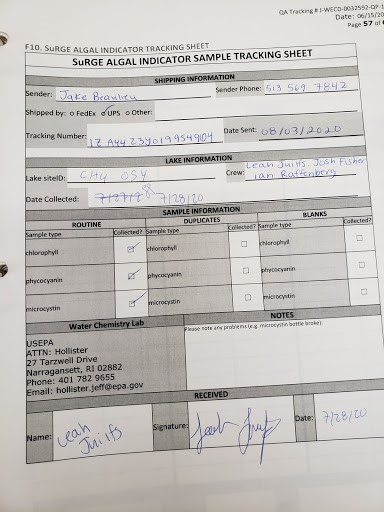 QA Tracking # J-WECD-0032592-QP-1
Date: 06/15/20
Page 57 of
F10. SuRGE ALGAL INDICATOR TRACKING SHEET
SuRGE ALGAL INDICATOR SAMPLE TRACKING SHEET
SHIPPING INFORMATION
Sender: Jake Beaulieu Sender Phone: 513 569 7842
Shipped by: o FedEx o UPS o Other:
Tracking Number: 1Z A44 23Y0199549104 Date Sent: 08/03/2020
LAKE INFORMATION
Lake siteID: CH4 054 Crew: Leah Juilfs, Josh Fisher
Ian Raffenberg
Date Collected: 7/28/20
SAMPLE INFORMATION
ROUTINE DUPLICATES BLANKS
Sample type Collected? Sample type Collected? Sample type Collected?
chlorophyll ☑ chlorophyll ☐ chlorophyll ☐
phycocyanin ☑ phycocyanin ☐ phycocyanin ☐
microcystin ☑ microcystin ☐ microcystin ☐
Water Chemistry Lab NOTES
Please note any problems (e.g. microcystin bottle broke)
USEPA
ATTN: Hollister
27 Tarzwell Drive
Narragansett, RI 02882
Phone: 401 782 9655
Email: hollister.jeff@epa.gov
RECEIVED
Name: Leah Juilfs Signature: Date: 7/28/20